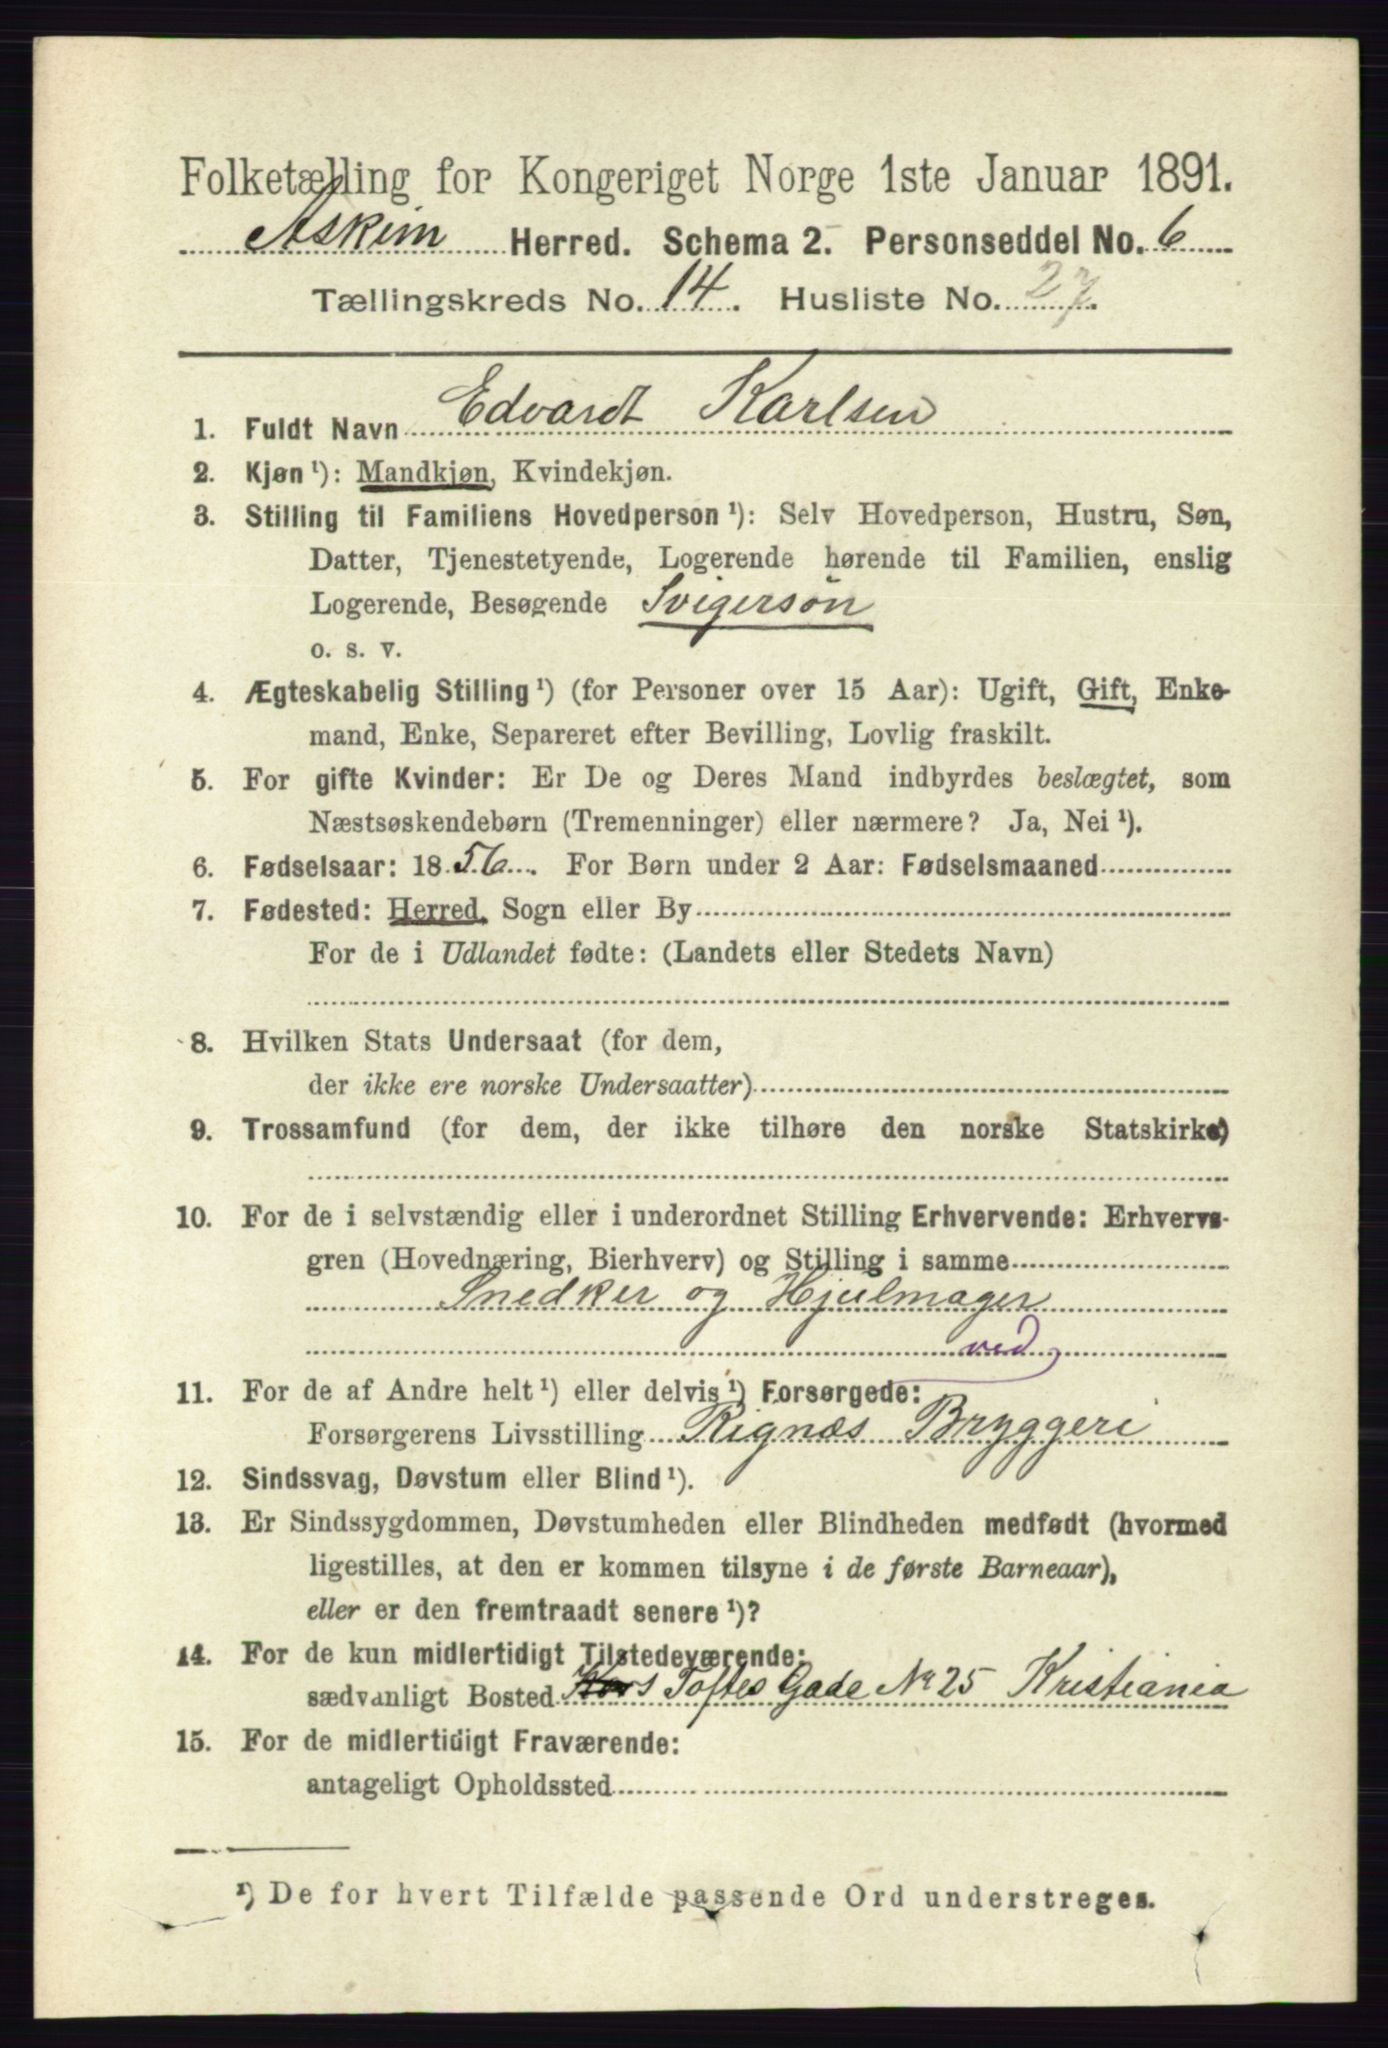 Folketælling for Kongeriget Norge 1ste Januar 1891.
Askim Herred. Schema 2. Personseddel No. 6
Tællingskreds No. 14. Husliste No. 27.
1. Fuldt Navn Edvardt Karlsen
2. Kjøn ¹): Mandkjøn, Kvindekjøn.
3. Stilling til Familiens Hovedperson ¹): Selv Hovedperson, Hustru, Søn,
Datter, Tjenestetyende, Logerende hørende til Familien, enslig
Logerende, Besøgende Svigersön
o. s. v.
4. Ægteskabelig Stilling ¹) (for Personer over 15 Aar): Ugift, Gift, Enke-
mand, Enke, Separeret efter Bevilling, Lovlig fraskilt.
5. For gifte Kvinder: Er De og Deres Mand indbyrdes beslægtet, som
Næstsøskendebørn (Tremenninger) eller nærmere? Ja, Nei ¹).
6. Fødselsaar: 1856. For Børn under 2 Aar: Fødselsmaaned
7. Fødested: Herred, Sogn eller By
For de i Udlandet fødte: (Landets eller Stedets Navn)
8. Hvilken Stats Undersaat (for dem,
der ikke ere norske Undersaatter)
9. Trossamfund (for dem, der ikke tilhøre den norske Statskirke)
10. For de i selvstændig eller i underordnet Stilling Erhvervende: Erhvervs-
gren (Hovednæring, Bierhverv) og Stilling i samme
Snedker og Hjulmager
ved
11. For de af Andre helt ¹) eller delvis ¹) Forsørgede:
Forsørgerens Livsstilling Rignæs Bryggeri
12. Sindssvag, Døvstum eller Blind ¹).
13. Er Sindssygdommen, Døvstumheden eller Blindheden medfødt (hvormed
ligestilles, at den er kommen tilsyne i de første Barneaar),
eller er den fremtraadt senere ¹)?
14. For de kun midlertidigt Tilstedeværende:
sædvanligt Bosted Toftes Gade No 25 Kristiania
15. For de midlertidigt Fraværende:
antageligt Opholdssted
¹) De for hvert Tilfælde passende Ord understreges.